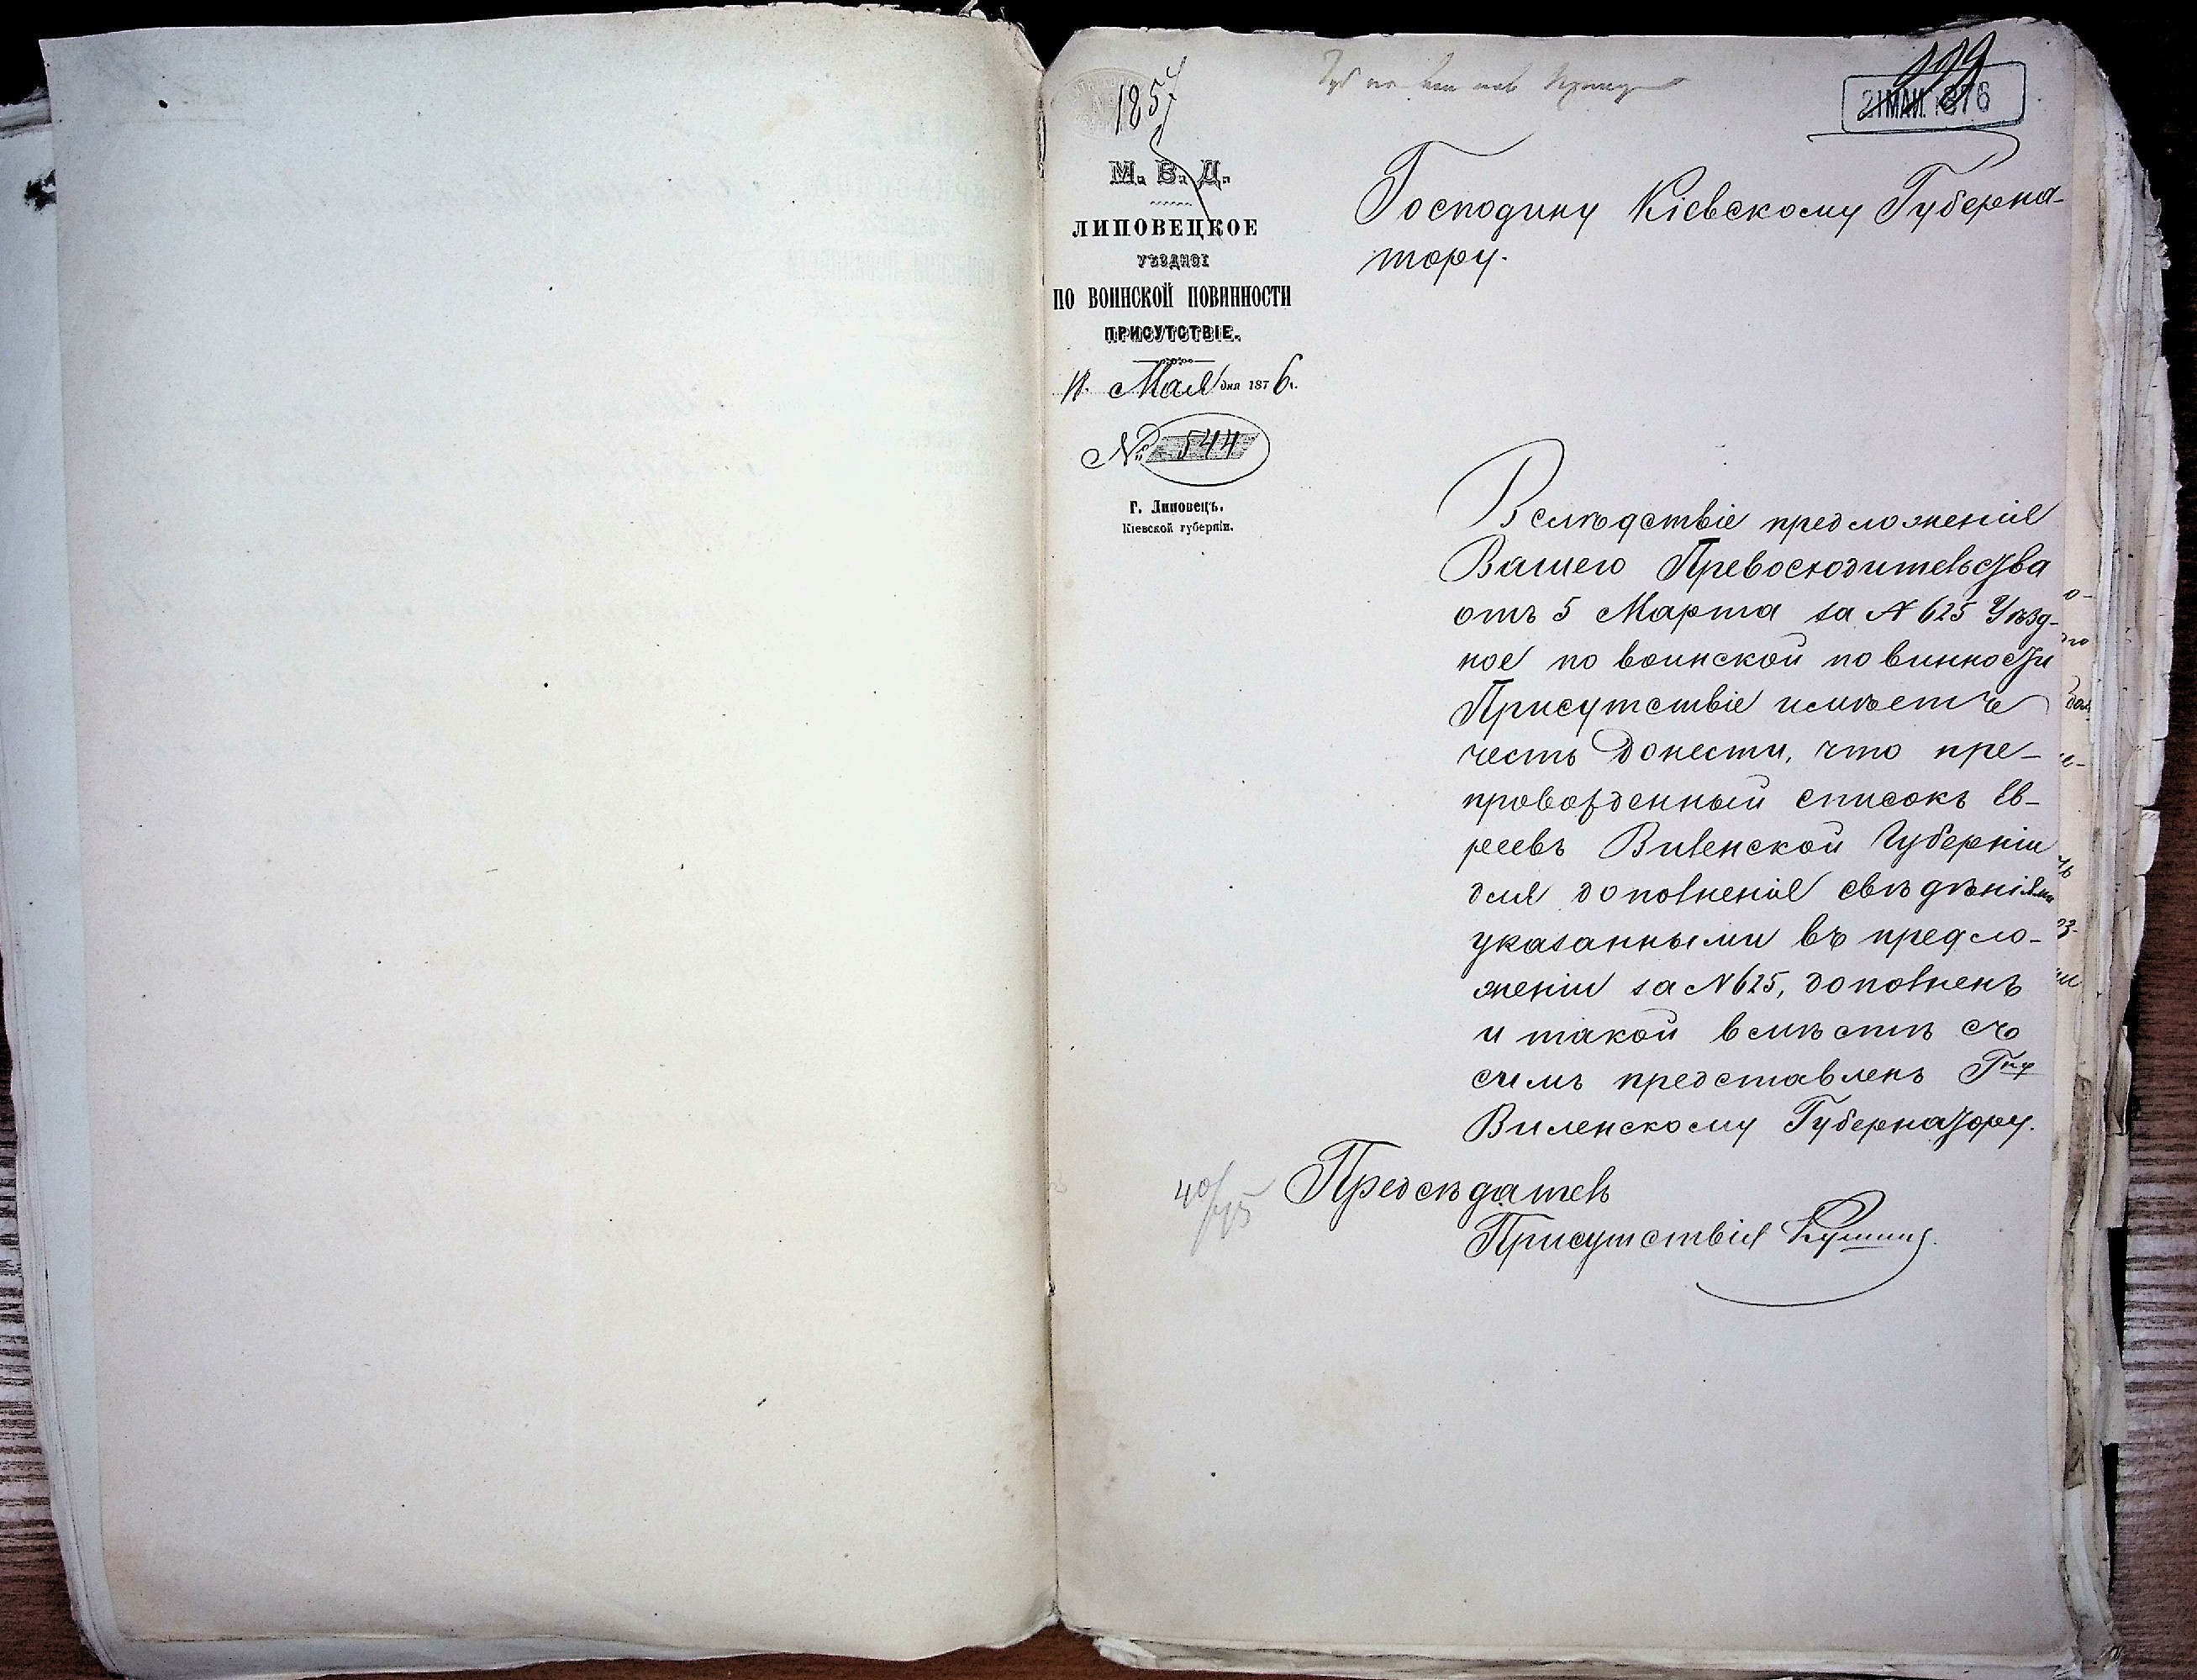 1857
199
21 МАЯ 1876
М. В. Д.
ЛИПОВЕЦКОЕ
УѢЗДНОЕ
ПО ВОИНСКОЙ ПОВИННОСТИ
ПРИСУТСТВІЕ.
18. Мая дня 1876 г.
№ 544
Г. Липовецъ.
Кіевской губерніи.
Господину Кіевскому Губерна-
тору.
Вслѣдствіе предложенія
Вашего Превосходительства
отъ 5 Марта за N 625 Уѣзд-
ное по воинской повинности
Присутствіе имѣетъ
честь донести, что пре-
провожденный списокъ Ев-
реевъ Виленской Губерніи
для дополненія свѣдѣніями
указанными въ предло-
женіи за N 625, дополненъ
и такой вмѣстѣ съ
симъ представленъ Гну
Виленскому Губернатору.
Предсѣдатель
Присутствія
40/75